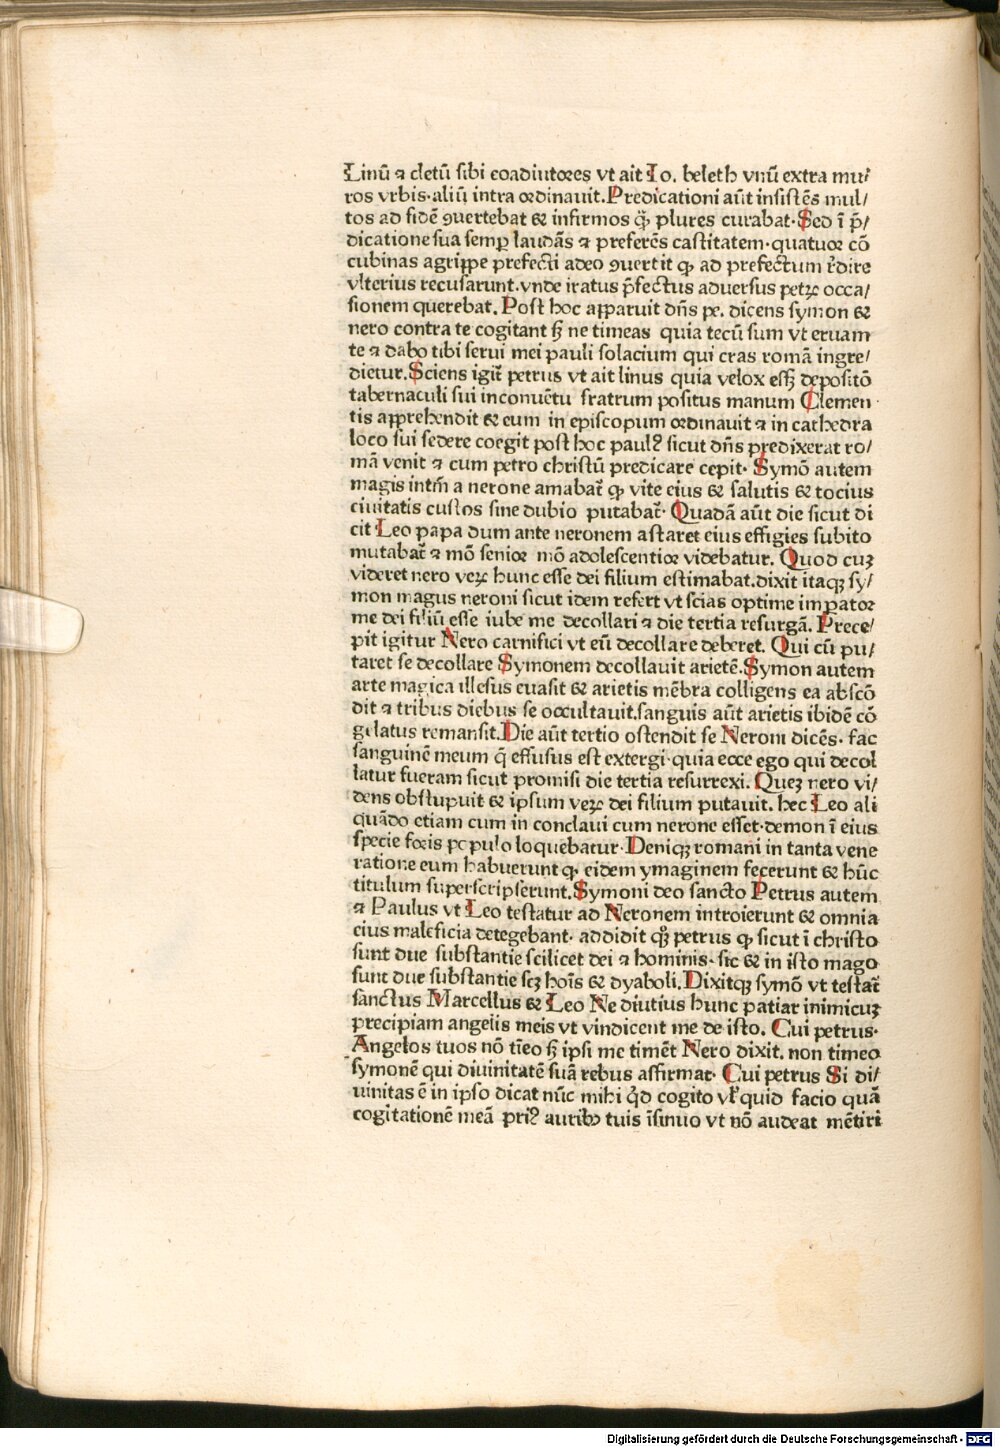 Linū ⁊ cletū sibi coadiutores vt ait Io. beleth vnū extra mu/
ros vrbis·aliū intra ordinauit.Predicationi aūt insistēs mul/
tos ad fidē ꝯuertebat & infirmos qꝫ plures curabat·Sed ī p̄/
dicatione sua semꝑ laudās ⁊ preferēs castitatem·quatuor cō
cubinas agrippe prefecti adeo ꝯuertit ꝙ ad prefectum r̄dire
vlterius recusarunt.vnde iratus p̄fectus aduersus petrꝝ occa/
sionem querebat. Post hoc apparuit dn̄s pe. dicens symon &
nero contra te cogitant sꝫ ne timeas quia tecū sum vt eruam
te ⁊ dabo tibi serui mei pauli solacium qui cras romā ingre/
dietur.Sciens igit̄ petrus vt ait linus quia velox essꝫ depositō
tabernaculi sui inconuētu fratrum positus manum Clemen
tis apprehendit & eum in episcopum ordinauit ⁊ in cathedra
loco sui sedere coegit post hoc paulꝰ sicut dn̄s predixerat ro/
mā venit ⁊ cum petro christū predicare cepit· Symō autem
magis intm̄ a nerone amabat̄ ꝙ vite eius & salutis & tocius
ciuitatis custos sine dubio putabat̄· Quadā aūt die sicut di
cit Leo papa dum ante neronem astaret eius effigies subito
mutabat̄ ⁊ mō senior mō adolescentior videbatur. Quod cuꝫ
videret nero veꝝ hunc esse dei filium estimabat.dixit itaqꝫ sy/
mon magus neroni sicut idem refert vt scias optime imperator
me dei filiū esse iube me decollari ⁊ die tertia resurgā. Prece/
pit igitur Nero carnifici vt eū decollare deberet. Qui cū pu/
taret se decollare Symonem decollauit arietē.Symon autem
arte magica illesus euasit & arietis mēbra colligens ea abscō
dit ⁊ tribus diebus se occultauit.sanguis aūt arietis ibidē cō
gelatus remansit.Die aūt tertio ostendit se Neroni dicēs· fac
sanguinē meum q̄ effusus est extergi·quia ecce ego qui decol
latur fueram sicut promisi die tertia resurrexi. Queꝫ nero vi/
dens obstupuit & ipsum veꝝ dei filium putauit. hec Leo ali
quādo etiam cum in conclaui cum nerone esset·demon ī eius
specie foris populo loquebatur·Deniqꝫ romani in tanta vene
ratione eum habuerunt ꝙ eidem ymaginem fecerunt & hūc
titulum superscripserunt.Symoni deo sancto Petrus autem
⁊ Paulus vt Leo testatur ad Neronem introierunt & omnia
eius maleficia detegebant· addidit qꝫ petrus ꝙ sicut ī christo
sunt due substantie scilicet dei ⁊ hominis·sic & in isto mago
sunt due substantie scꝫ hoīs & dyaboli.Dixitqꝫ symō vt testat̄
sanctus Marcellus & Leo Ne diutius hunc patiar inimicuꝫ
precipiam angelis meis vt vindicent me de isto. Cui petrus·
Angelos tuos nō tīeo sꝫ ipsi me timēt Nero dixit. non timeo
symonē qui diuinitatē suā rebus affirmat· Cui petrus Si di/
uinitas ē in ipso dicat nūc mihi qd̄ cogito vl̄ quid facio quā
cogitationē meā priꝰ auribꝫ tuis īsinuo vt nō audeat mētiri
Digitalisierung gefördert durch die Deutsche Forschungsgemeinschaft - DFG